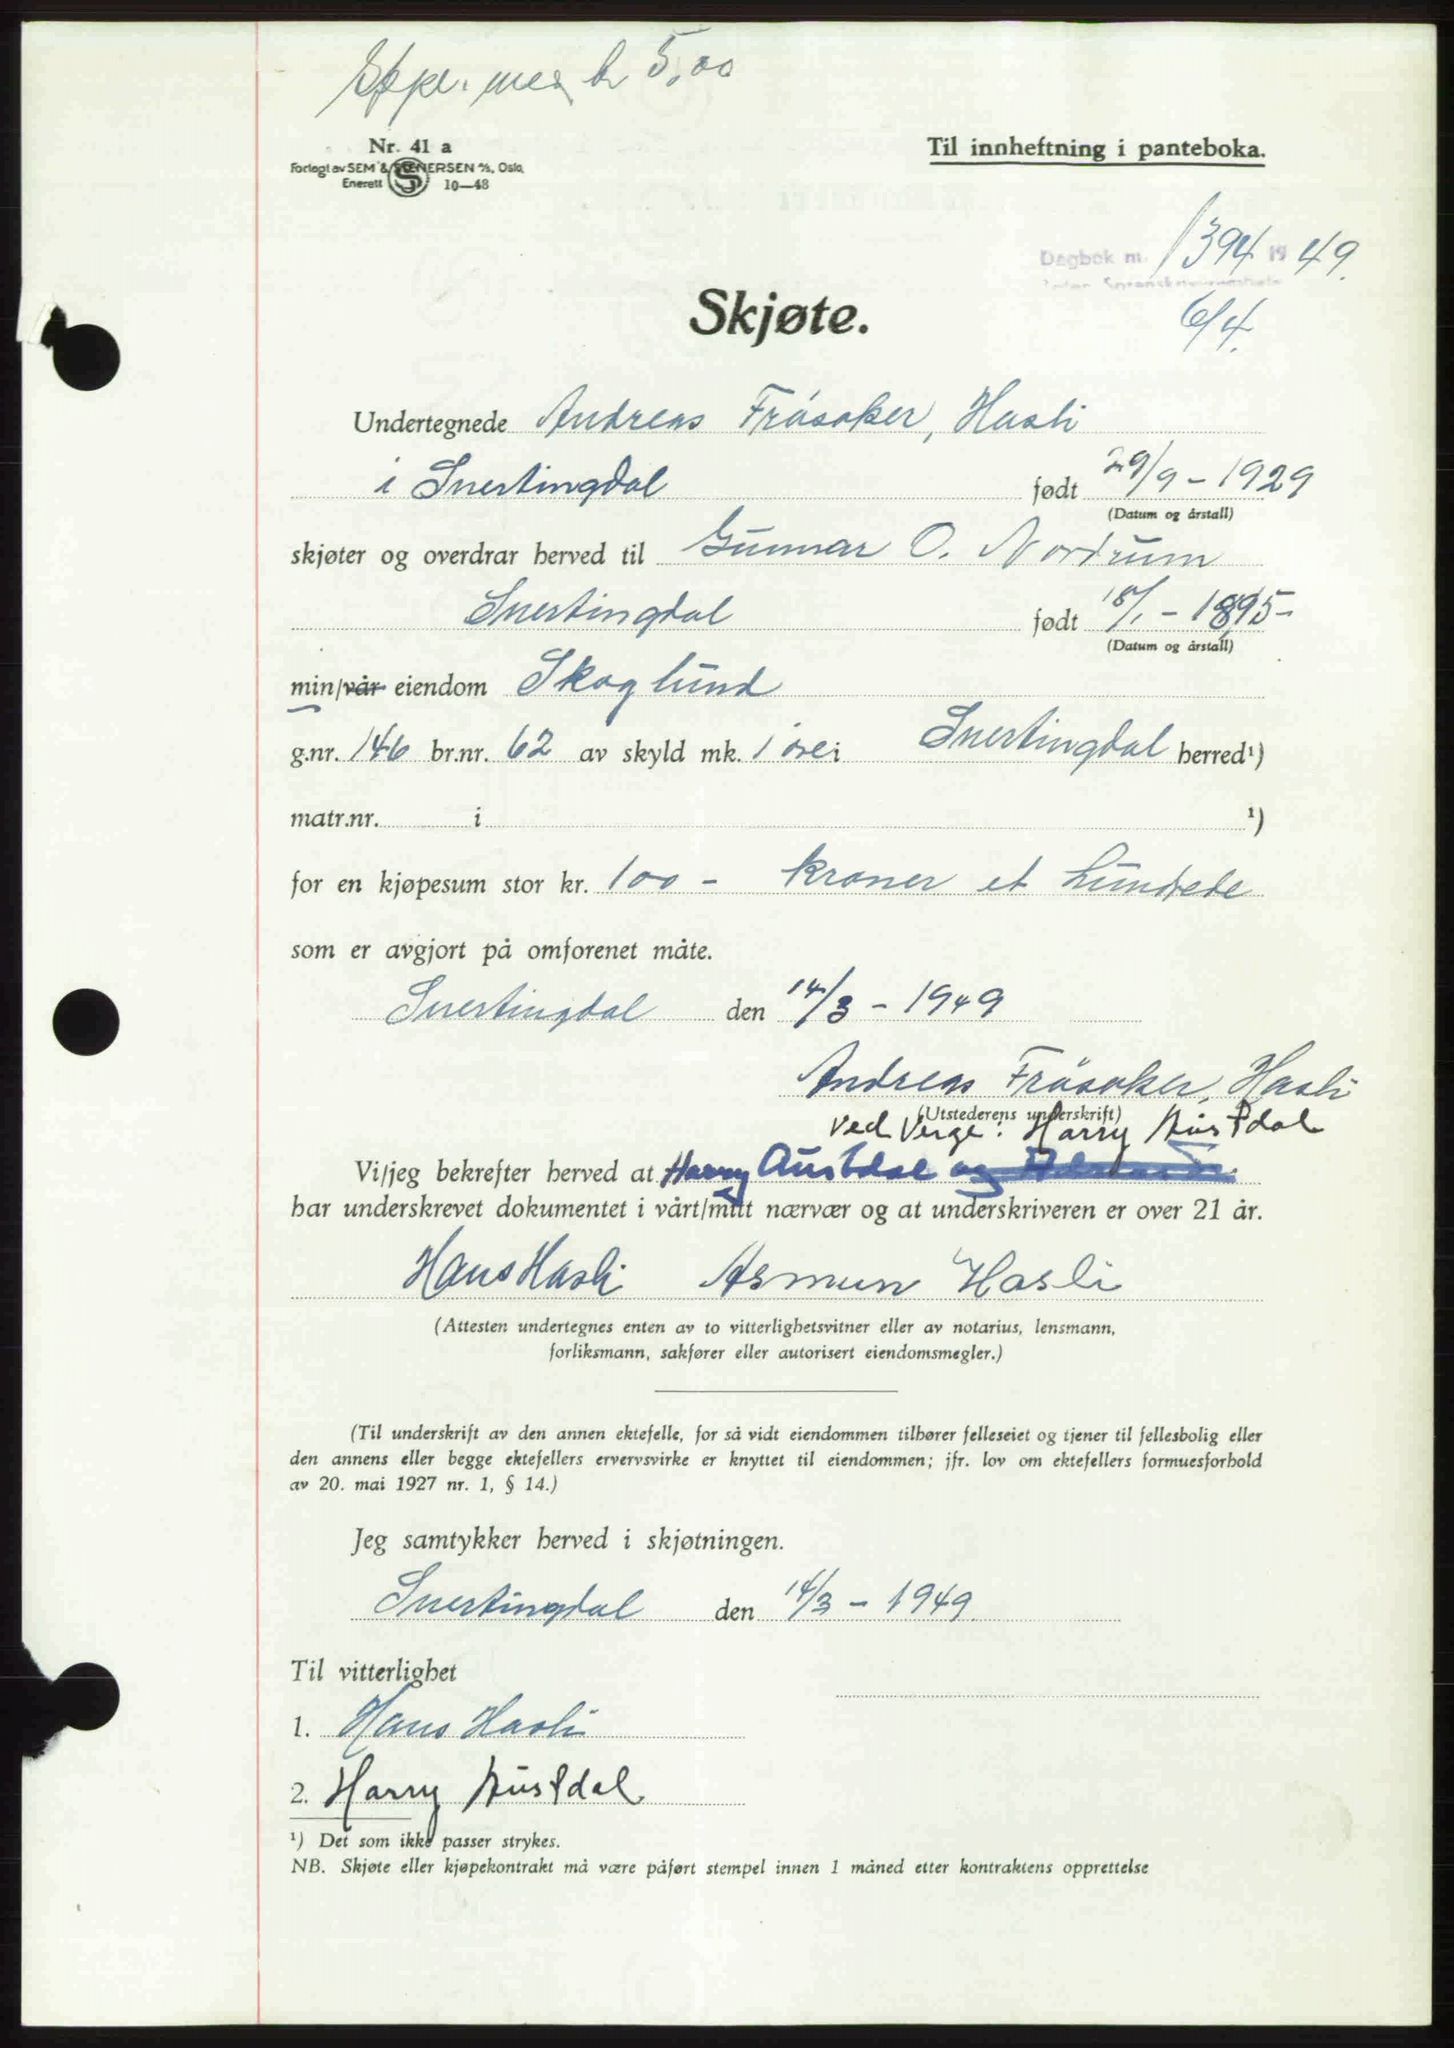 med kr 5,00
Nr. 41 a
Forlagt av SEM & STENERSEN A/S, Oslo.
Enerett 10—48
Til innheftning i panteboka.
Dagbok nr. 1394 19 49.
6/4.
Skjøte.
Undertegnede Andreas Frösaker, Hasli
i Snertingdal født 29/9 - 1929
(Datum og årstall)
skjøter og overdrar herved til Gunnar O. Nordrum
Snertingdal født 18/1 - 1895-
(Datum og årstall)
min/vår eiendom Skoglund
g.nr. 146 br.nr. 62 av skyld mk. 1 øre i Snertingdal herred¹)
matr.nr. i ¹)
for en kjøpesum stor kr. 100 - kroner et hundrede
som er avgjort på omforenet måte.
Snertingdal den 14/3 - 1949
Andreas Frösaker, Hasli
(Utstederens underskrift)
ved Verge: Harry Austdal
Vi/jeg bekrefter herved at Harry Austdal og
har underskrevet dokumentet i vårt/mitt nærvær og at underskriveren er over 21 år.
Hans Hasli Asmun Hasli
(Attesten undertegnes enten av to vitterlighetsvitner eller av notarius, lensmann,
forliksmann, sakfører eller autorisert eiendomsmegler.)
(Til underskrift av den annen ektefelle, for så vidt eiendommen tilhører felleseiet og tjener til fellesbolig eller
den annens eller begge ektefellers ervervsvirke er knyttet til eiendommen; jfr. lov om ektefellers formuesforhold
av 20. mai 1927 nr. 1, § 14.)
Jeg samtykker herved i skjøtningen.
Snertingdal den 14/3 - 1949
Til vitterlighet
1. Hans Hasli
2. Harry Austdal
¹) Det som ikke passer strykes.
NB. Skjøte eller kjøpekontrakt må være påført stempel innen 1 måned etter kontraktens opprettelse